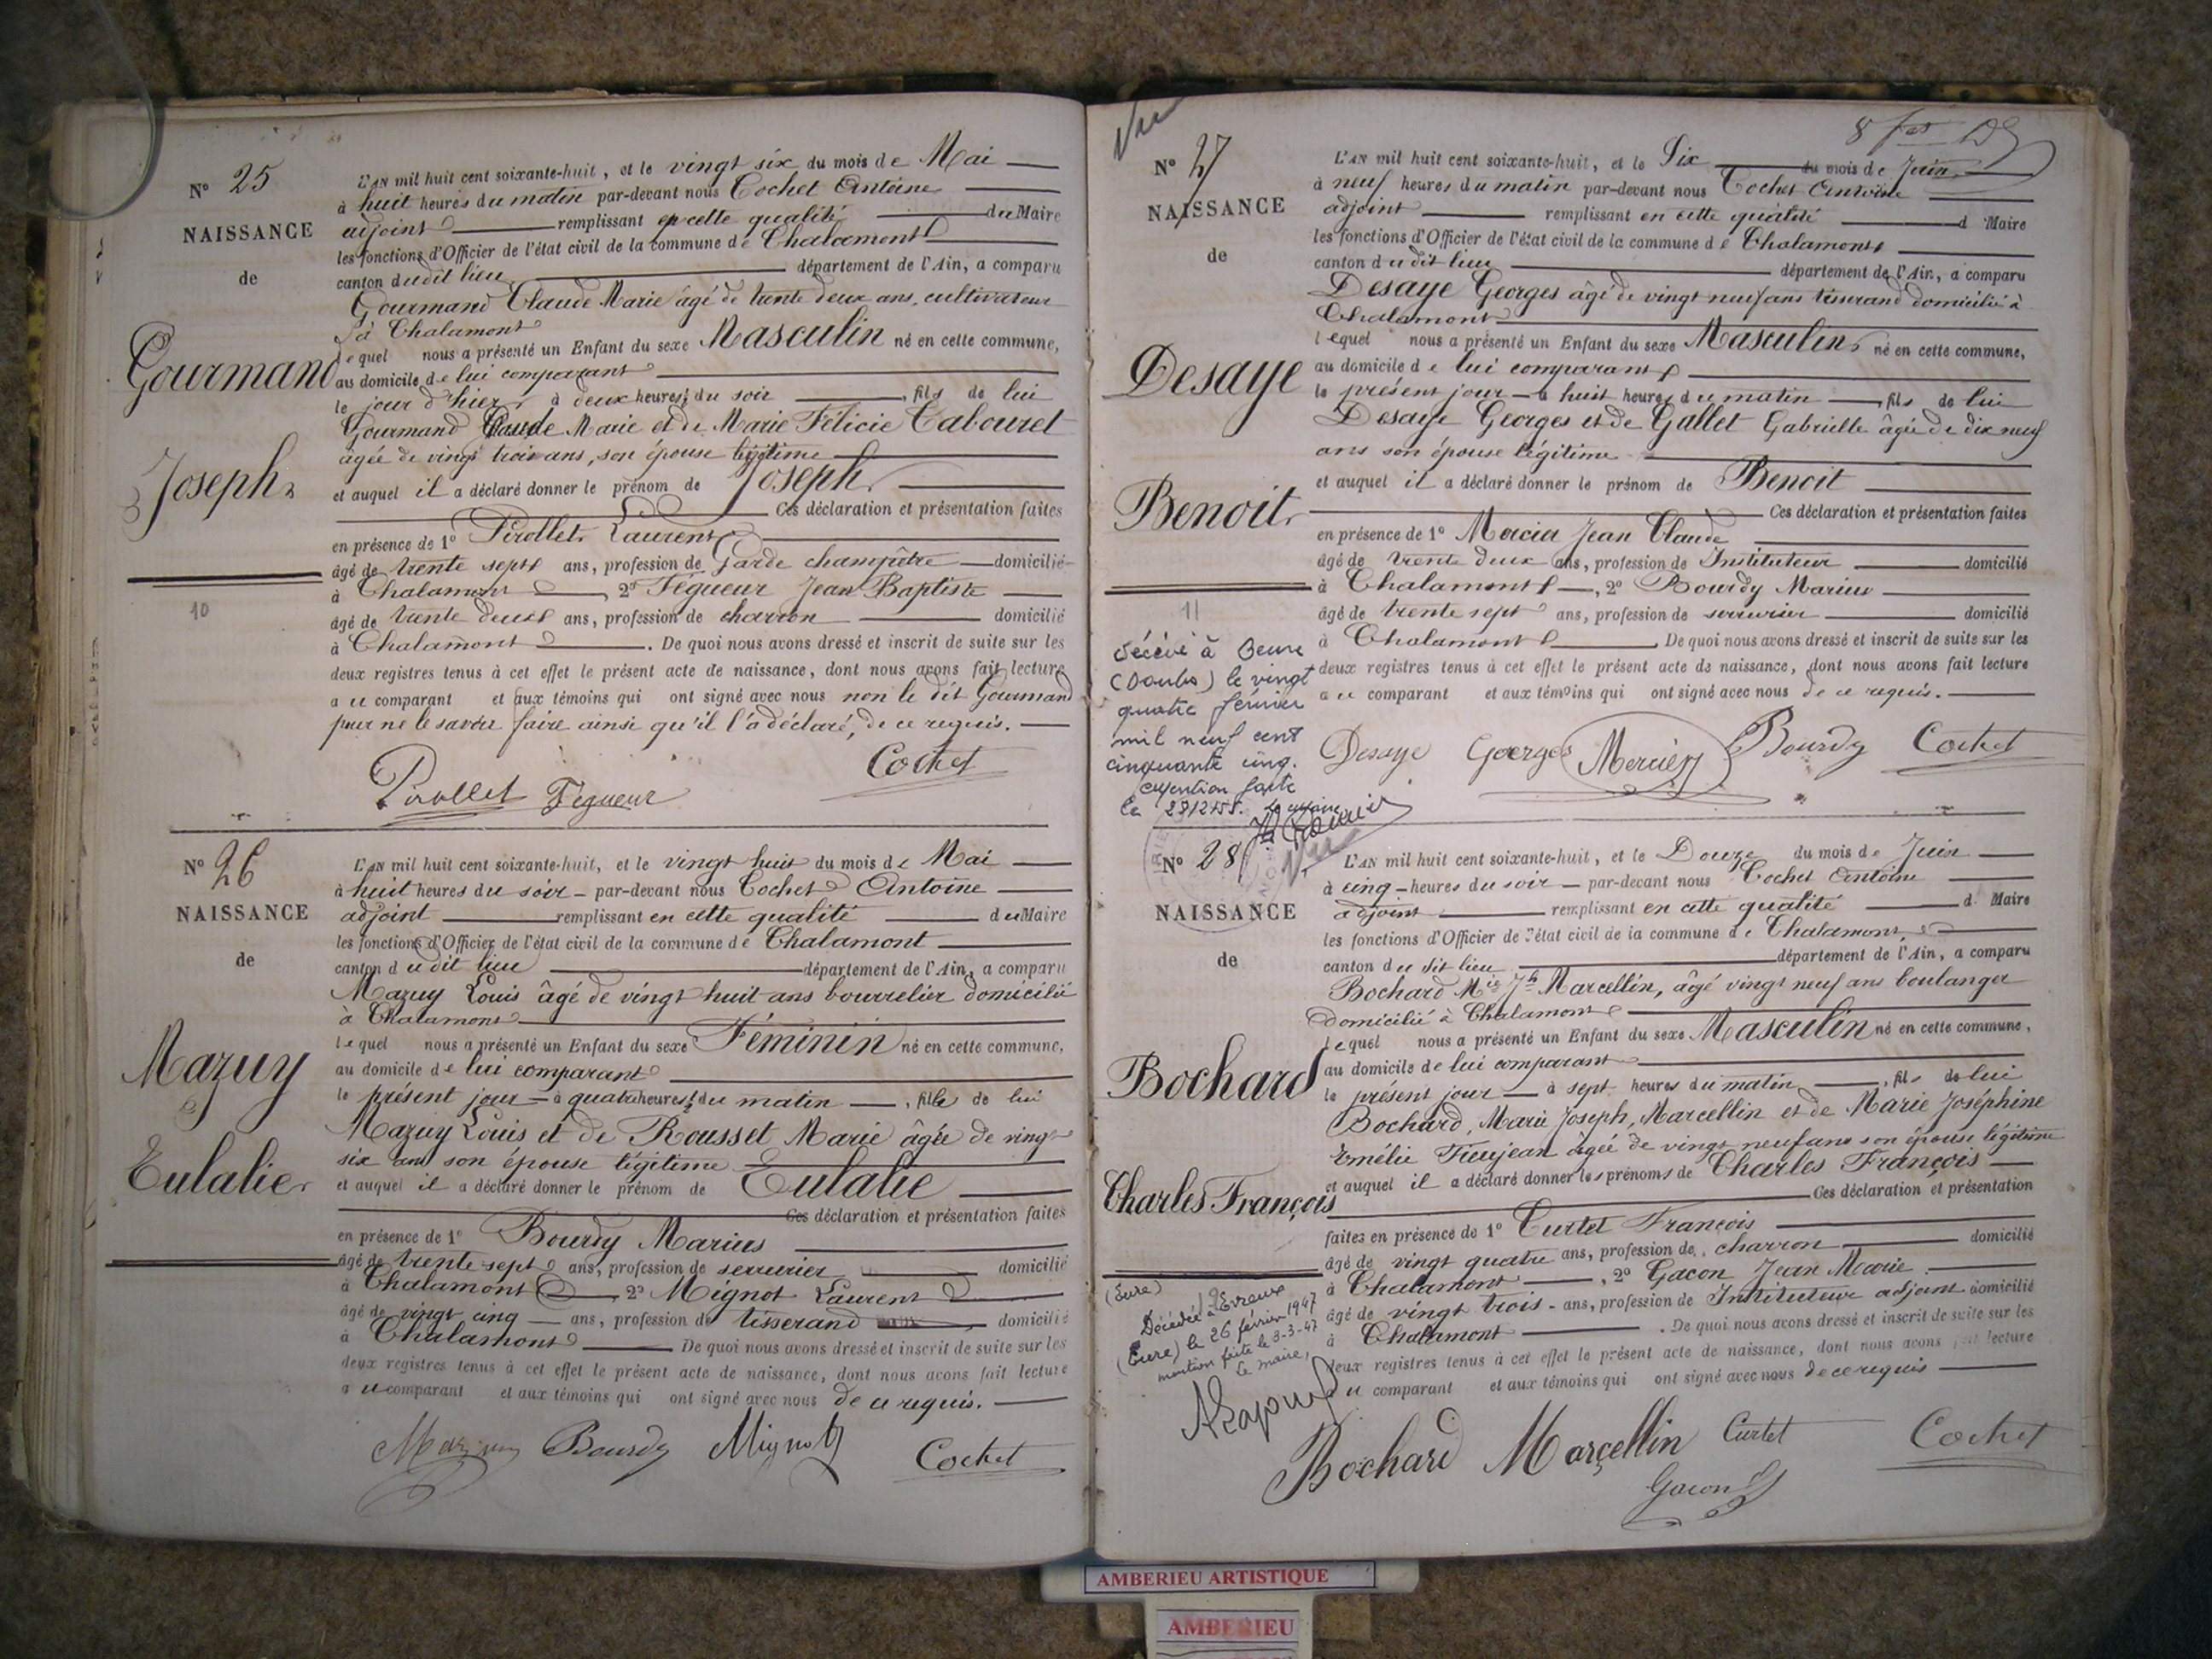 N° 25
NAISSANCE
de
Gourmand
Joseph
10
L'AN mil huit cent soixante-huit, et le vingt six du mois de Mai
à huit heures du matin par-devant nous Cochet Antoine
adjoint remplissant en cette qualité du Maire
les fonctions d'Officier de l'état civil de la commune de Chalamont
canton dudit lieu département de l'Ain, a comparu
Gourmand Claude Marie âgé de trente deux ans, cultivateur
à Chalamont
lequel nous a présenté un Enfant du sexe Masculin né en cette commune,
au domicile de lui comparant
le jour d'hier à deux heures du soir, fils de lui
Gourmand Claude Marie et de Marie Félicie Cabouret
âgée de vingt trois ans, son épouse légitime
et auquel il a déclaré donner le prénom de Joseph
Ces déclaration et présentation faites
en présence de 1° Pirollet Laurent
âgé de trente sept ans, profession de Garde champêtre domicilié
à Chalamont, 2° Fégueur Jean Baptiste
âgé de trente deux ans, profession de charron domicilié
à Chalamont. De quoi nous avons dressé et inscrit de suite sur les
deux registres tenus à cet effet le présent acte de naissance, dont nous avons fait lecture
au comparant et aux témoins qui ont signé avec nous non le dit Gourmand
pour ne le savoir faire ainsi qu'il l'a déclaré, de ce requis.
Pirollet Fégueur Cochet
N° 26
NAISSANCE
de
Mazuy
Eulalie
L'AN mil huit cent soixante-huit, et le vingt huit du mois de Mai
à huit heures du soir - par-devant nous Cochet Antoine
adjoint remplissant en cette qualité du Maire
les fonctions d'Officier de l'état civil de la commune de Chalamont
canton dudit lieu département de l'Ain, a comparu
Mazuy Louis âgé de vingt huit ans bourrelier domicilié
à Chalamont
lequel nous a présenté un Enfant du sexe Féminin né en cette commune,
au domicile de lui comparant
le présent jour - à quatre heures ½ du matin, fille de lui
Mazuy Louis et de Rousset Marie âgée de vingt
six ans son épouse légitime
et auquel il a déclaré donner le prénom de Eulalie
Ces déclaration et présentation faites
en présence de 1° Bourdy Marius
âgé de trente sept ans, profession de serrurier domicilié
à Chalamont 2° Mignot Laurent
âgé de vingt cinq ans, profession de tisserand domicilié
à Chalamont De quoi nous avons dressé et inscrit de suite sur les
deux registres tenus à cet effet le présent acte de naissance, dont nous avons fait lecture
au comparant et aux témoins qui ont signé avec nous de ce requis.
Mazuy Bourdy Mignot Cochet
Vu
8
N° 27
NAISSANCE
de
Desaye
Benoit
11
Décédé à Beure
(Doubs) le vingt
quatre février
mil neuf cent
cinquante cinq.
Mention faite
le 28/2/55. Le Maire
L'AN mil huit cent soixante-huit, et le Six du mois de Juin
à neuf heures du matin par-devant nous Cochet Antoine
adjoint remplissant en cette qualité d Maire
les fonctions d'Officier de l'état civil de la commune de Chalamont
canton dudit lieu département de l'Ain, a comparu
Desaye Georges âgé de vingt neuf ans tisserand domicilié à
Chalamont
lequel nous a présenté un Enfant du sexe Masculin, né en cette commune,
au domicile de lui comparant
le présent jour - à huit heures du matin, fils de lui
Desaye Georges et de Gallet Gabrielle âgée de dix neuf
ans son épouse légitime
et auquel il a déclaré donner le prénom de Benoit
Ces déclaration et présentation faites
en présence de 1° Mercier Jean Claude
âgé de trente deux ans, profession de Instituteur domicilié
à Chalamont, 2° Bourdy Marius
âgé de trente sept ans, profession de serrurier domicilié
à Chalamont De quoi nous avons dressé et inscrit de suite sur les
deux registres tenus à cet effet le présent acte de naissance, dont nous avons fait lecture
au comparant et aux témoins qui ont signé avec nous de ce requis.
Desaye Goerges Mercier Bourdy Cochet
N° 28
Vu
NAISSANCE
de
Bochard
Charles François
(Eure)
Décédé à Evreux
(Eure) le 26 février 1947
mention faite le 3-3-47
le maire,
L'AN mil huit cent soixante-huit, et le Douze du mois de Juin
à cinq - heures du soir - par-devant nous Cochet Antoine
adjoint remplissant en cette qualité d Maire
les fonctions d'Officier de l'état civil de la commune de Chalamont
canton du dit lieu département de l'Ain, a comparu
Bochard Mie Jh Marcellin, âgé vingt neuf ans boulanger
domicilié à Chalamont
lequel nous a présenté un Enfant du sexe Masculin né en cette commune,
au domicile de lui comparant
le présent jour - à sept heures du matin, fils de lui
Bochard, Marie Joseph, Marcellin et de Marie Joséphine
Emélie Fieujean âgée de vingt neuf ans son épouse légitime
et auquel il a déclaré donner les prénoms de Charles François
Ces déclaration et présentation
faites en présence de 1° Curtet François
âgé de vingt quatre ans, profession de charron domicilié
à Chalamont, 2° Gacon Jean Marie
âgé de vingt trois - ans, profession de Instituteur adjoint domicilié
à Chalamont. De quoi nous avons dressé et inscrit de suite sur les
deux registres tenus à cet effet le présent acte de naissance, dont nous avons fait lecture
au comparant et aux témoins qui ont signé avec nous de ce requis
Bochard Marçellin Curtet Cochet
Gacon
AMBERIEU ARTISTIQUE
AMBERIEU